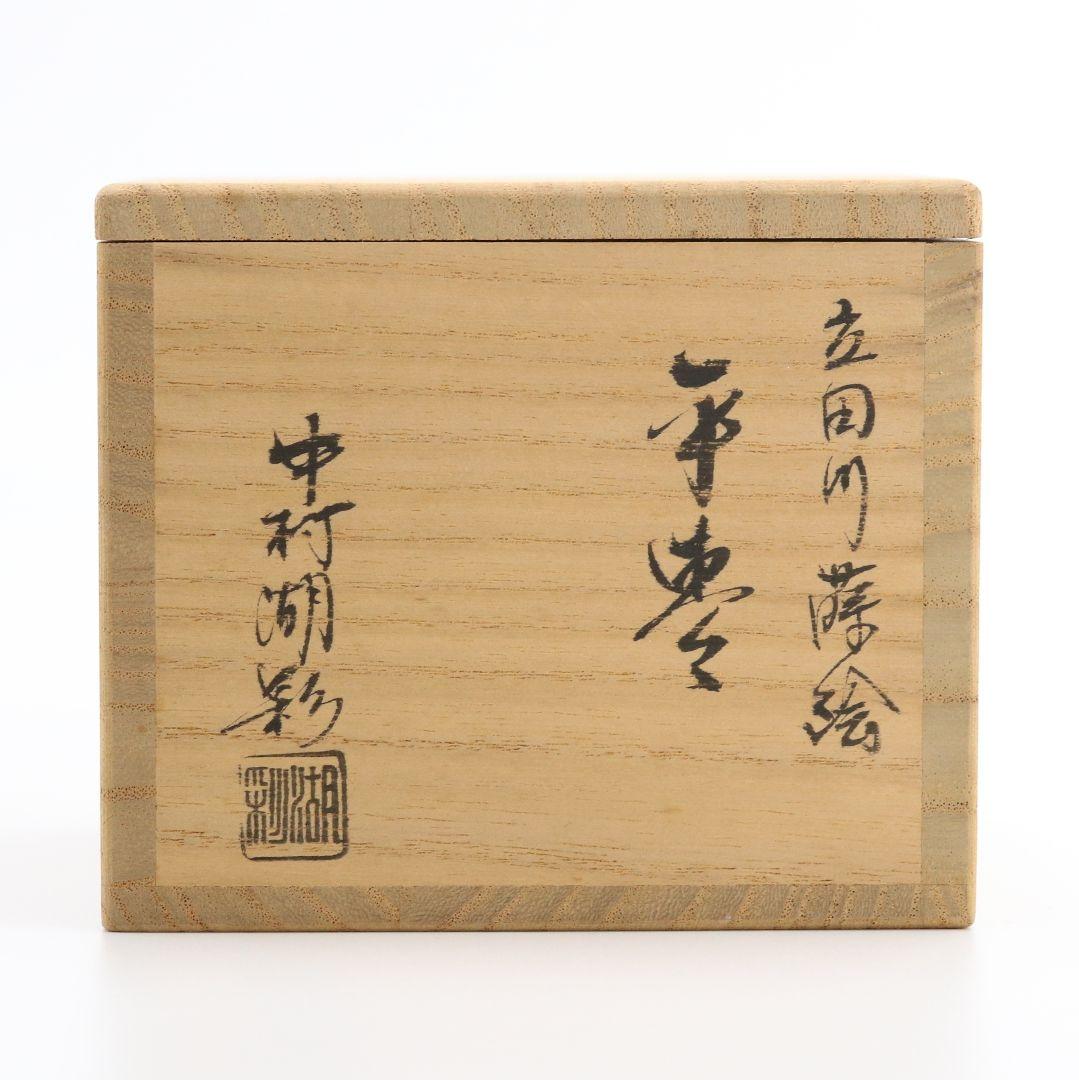 立田川蒔絵
平棗
中村湖彩
湖彩